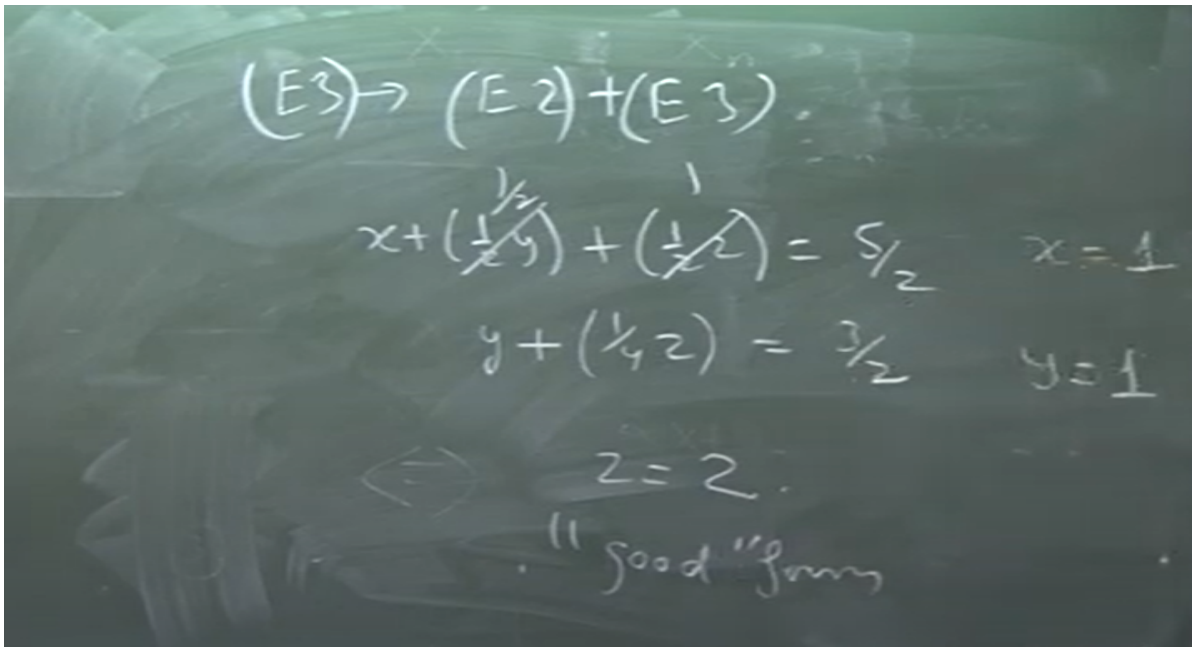 (E3) → (E2)+(E3).
1/2 1
x+(1/2 y) + (1/2 z) = 5/2 x = 1
y + (1/4 z) = 3/2 y = 1
z = 2.
"good" form